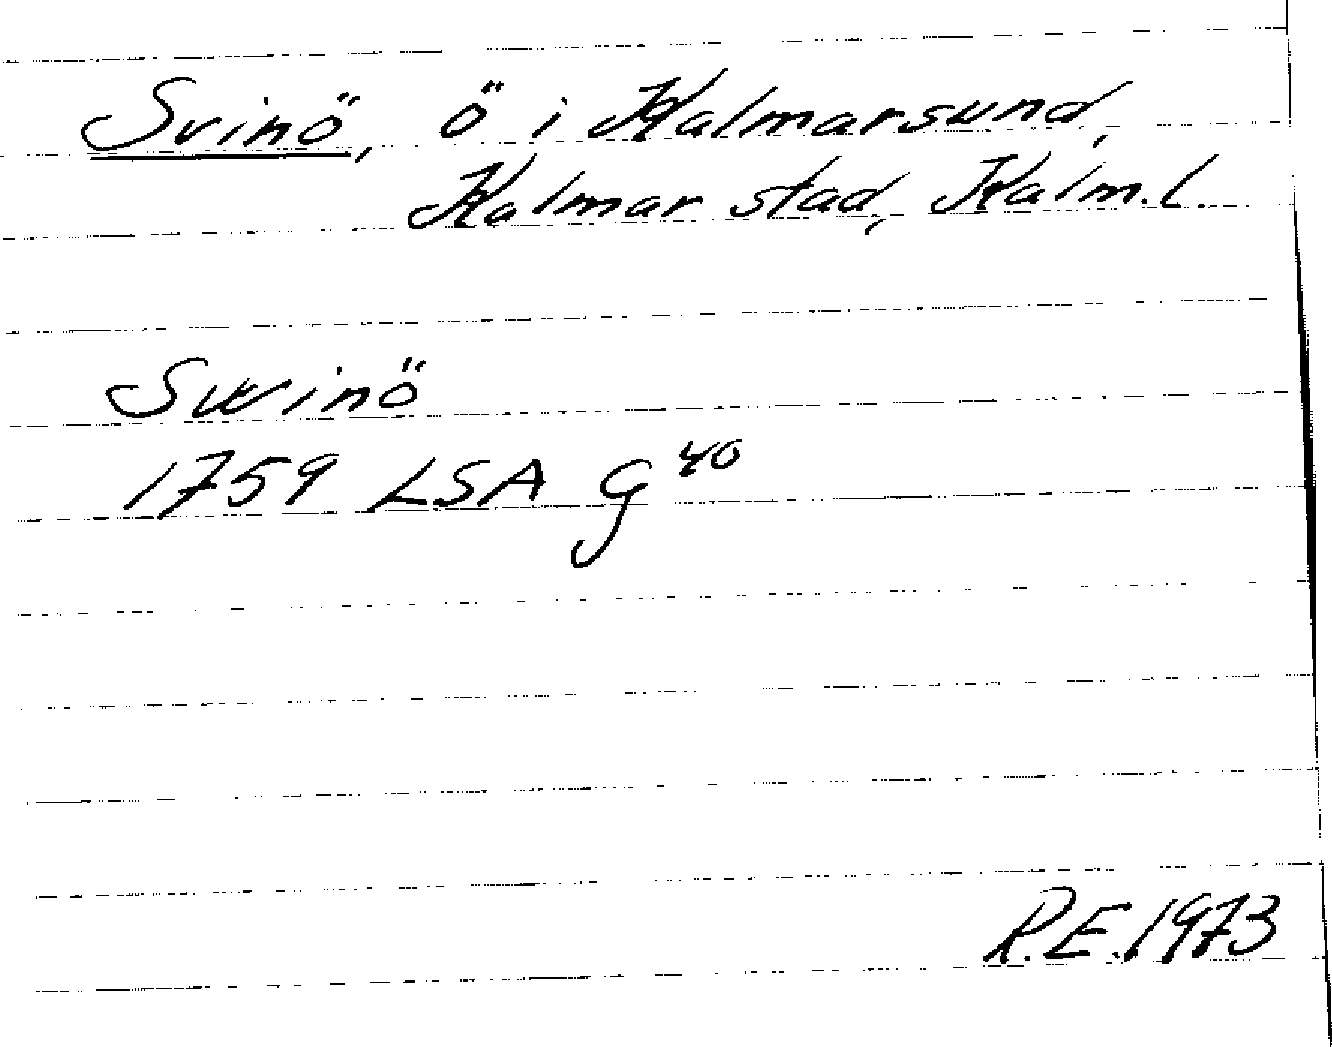 Svinö, ö i Kalmarsund,
Kalmar stad, Kalm.l.
Swinö
1759 LSA G 40
R.E.1973